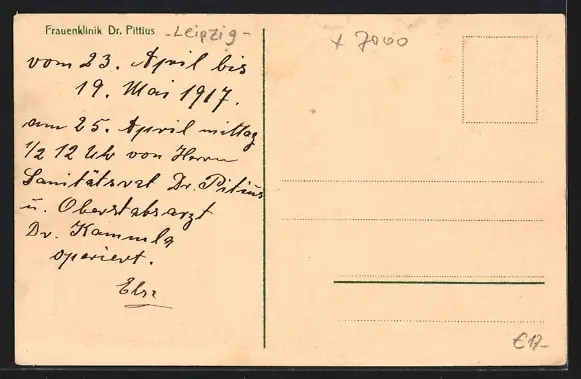 Frauenklinik Dr. Pittius -Leipzig-
x 7000
vom 23. April bis
19. Mai 1917.
am 25. April mittag
1/2 12 Uhr von Herrn
Sanitätsrat Dr. Pitius
u. Oberstabsarzt
Dr. Kammla
operiert.
Else
€17-